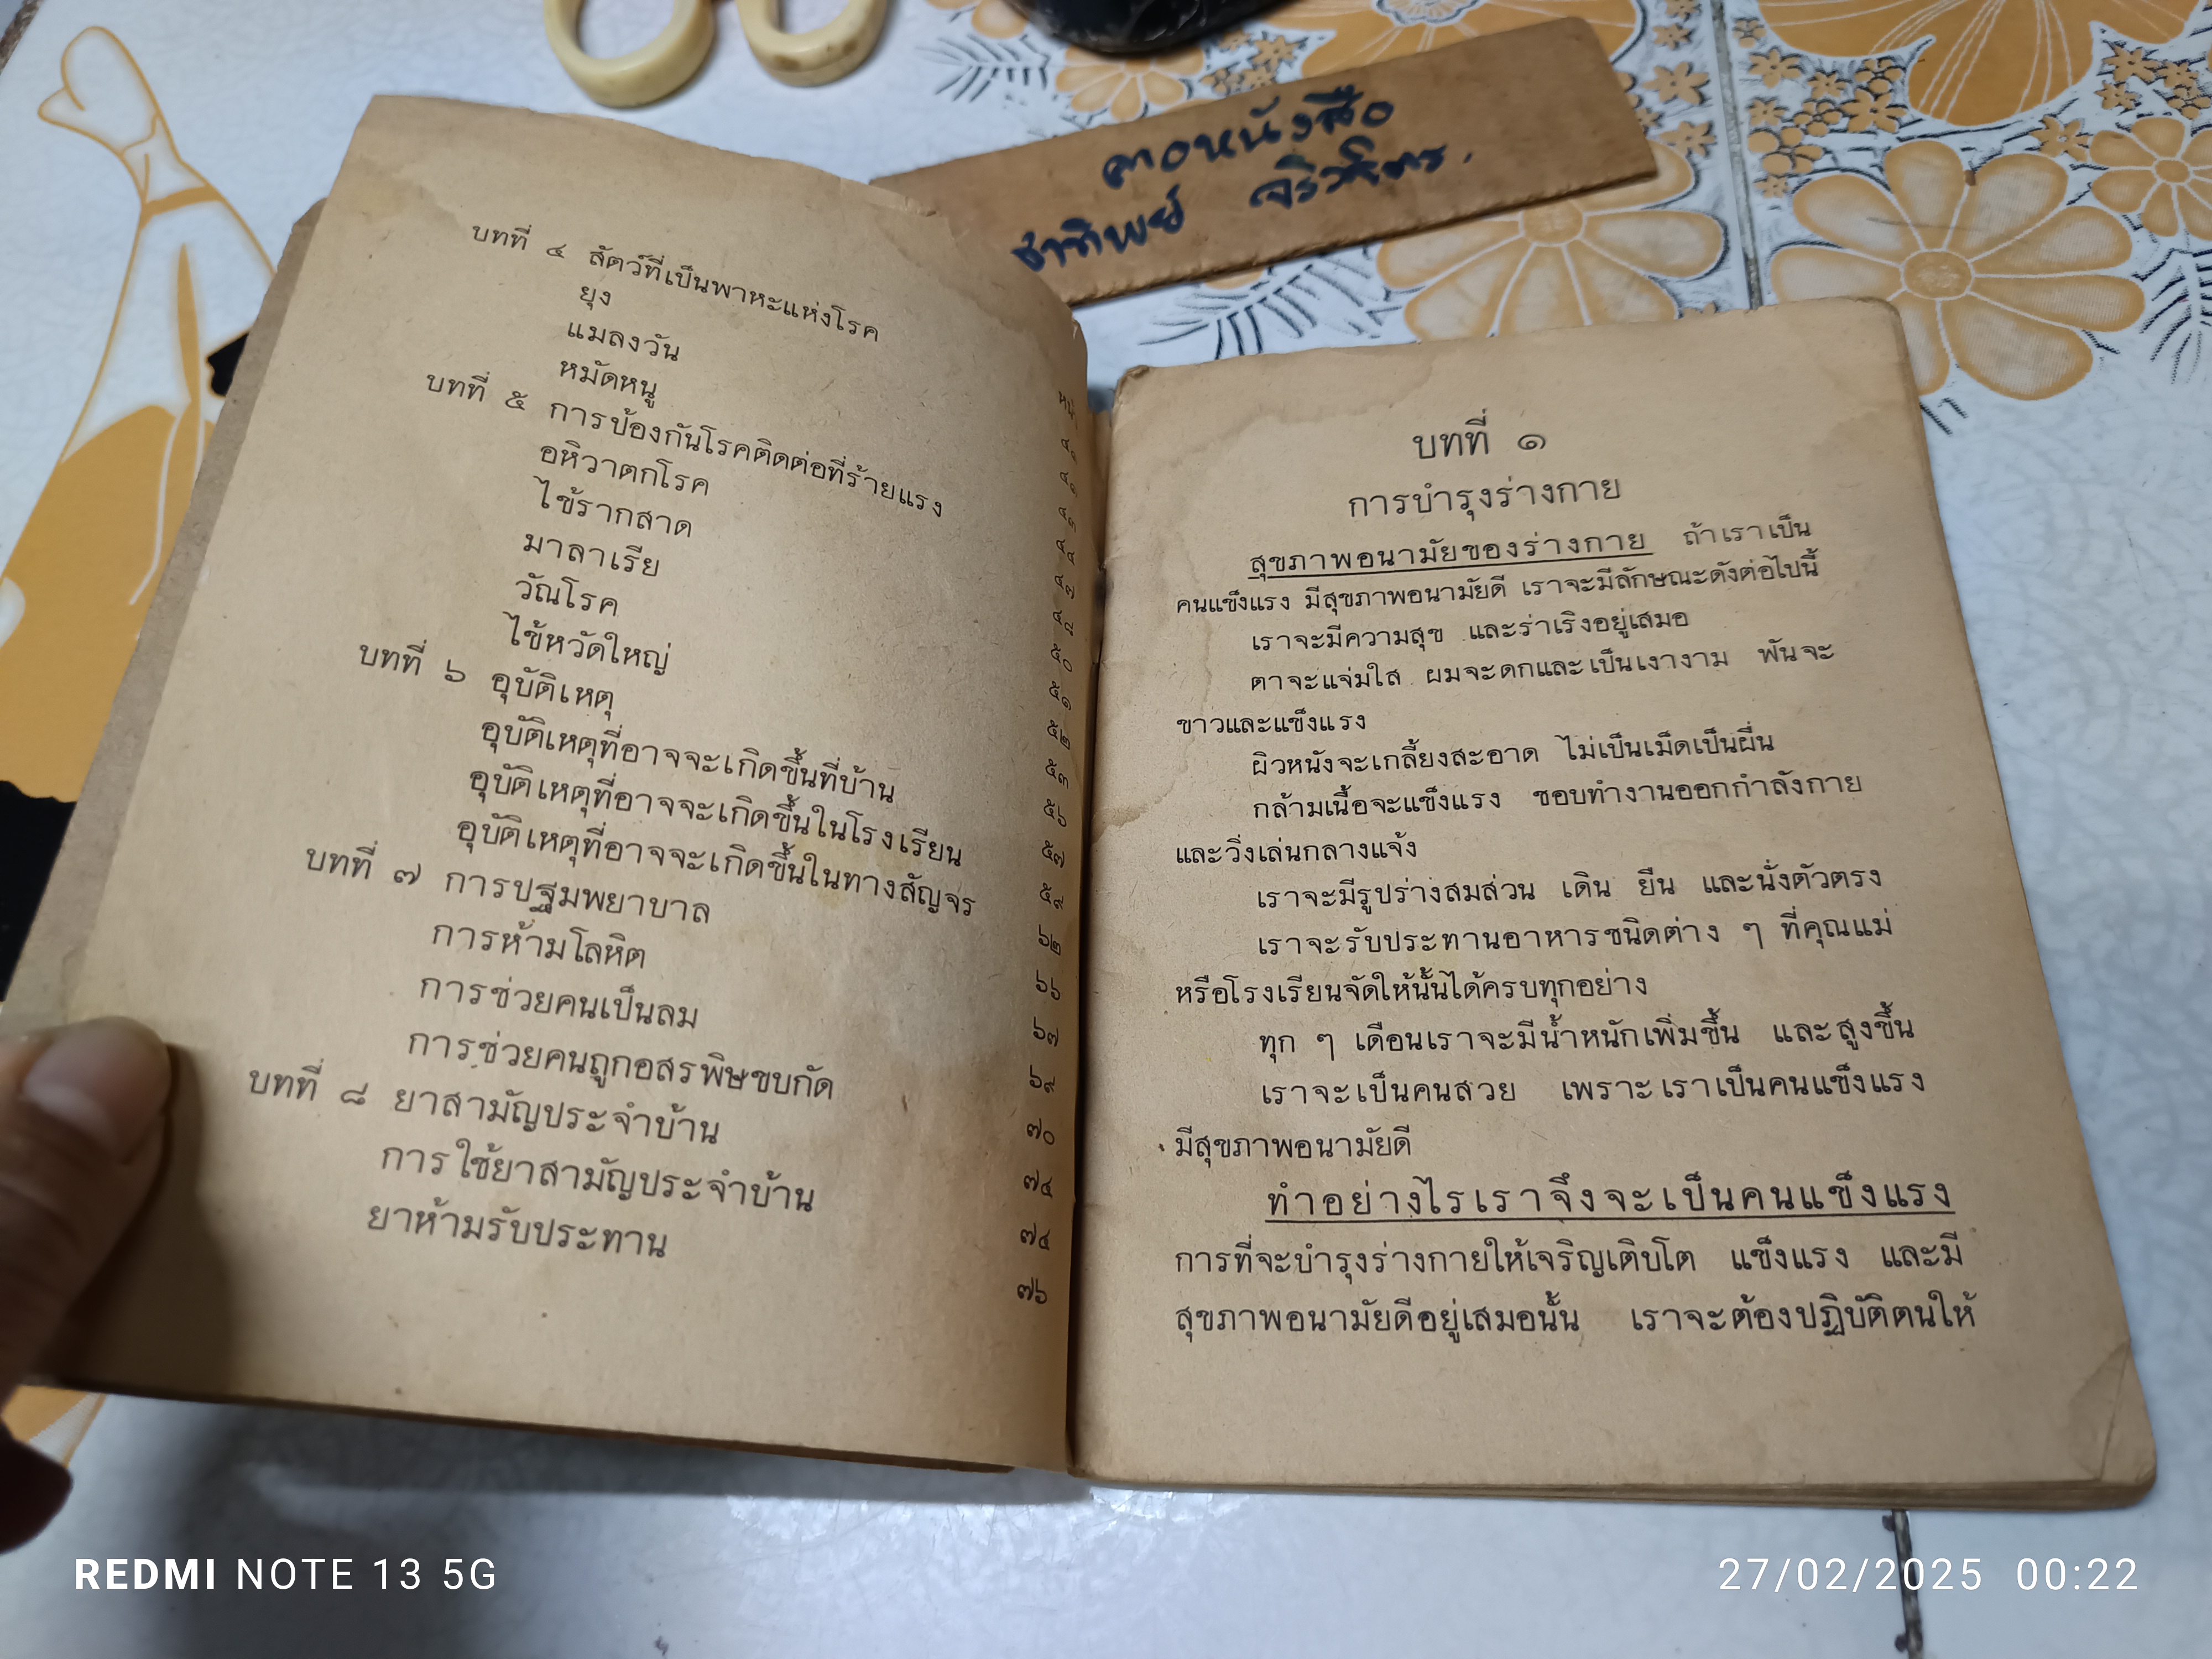 คอหนังสือ
บทที่ ๔ สัตว์ที่เป็นพาหะแห่งโรค
ยุง
แมลงวัน
หมัดหนู
บทที่ ๕ การป้องกันโรคติดต่อที่ร้ายแรง
อหิวาตกโรค
ไข้รากสาด
มาลาเรีย
วัณโรค
ไข้หวัดใหญ่
บทที่ ๖ อุบัติเหตุ
อุบัติเหตุที่อาจจะเกิดขึ้นที่บ้าน
อุบัติเหตุที่อาจจะเกิดขึ้นในโรงเรียน
อุบัติเหตุที่อาจจะเกิดขึ้นในทางสัญจร
บทที่ ๗ การปฐมพยาบาล
การห้ามโลหิต
การช่วยคนเป็นลม
การช่วยคนถูกอสรพิษขบกัด
บทที่ ๘ ยาสามัญประจำบ้าน ๗๐
การใช้ยาสามัญประจำบ้าน ๗๔
ยาห้ามรับประทาน ๗๔
๗๖
บทที่ ๑
การบำรุงร่างกาย
สุขภาพอนามัยของร่างกาย ถ้าเราเป็น
คนแข็งแรง มีสุขภาพอนามัยดี เราจะมีลักษณะดังต่อไปนี้
เราจะมีความสุข และร่าเริงอยู่เสมอ
ตาจะแจ่มใส ผมจะดกและเป็นเงางาม ฟันจะ
ขาวและแข็งแรง
ผิวหนังจะเกลี้ยงสะอาด ไม่เป็นเม็ดเป็นผื่น
กล้ามเนื้อจะแข็งแรง ชอบทำงานออกกำลังกาย
และวิ่งเล่นกลางแจ้ง
เราจะมีรูปร่างสมส่วน เดิน ยืน และนั่งตัวตรง
เราจะรับประทานอาหารชนิดต่าง ๆ ที่คุณแม่
หรือโรงเรียนจัดให้นั้นได้ครบทุกอย่าง
ทุก ๆ เดือนเราจะมีน้ำหนักเพิ่มขึ้น และสูงขึ้น
เราจะเป็นคนสวย เพราะเราเป็นคนแข็งแรง
มีสุขภาพอนามัยดี
ทำอย่างไรเราจึงจะเป็นคนแข็งแรง
การที่จะบำรุงร่างกายให้เจริญเติบโต แข็งแรง และมี
สุขภาพอนามัยดีอยู่เสมอนั้น เราจะต้องปฏิบัติตนให้
REDMI NOTE 13 5G
27/02/2025 00:22